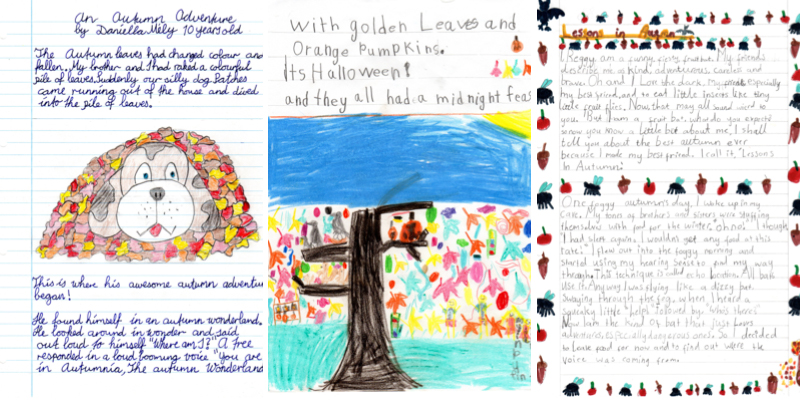 An Autumn Adventure
by Daniella Mély 10 years old
The Autumn leaves had changed colour and
fallen. My brother and I had raked a colourful
pile of leaves. Suddenly our silly dog Patches
came running out of the house and dived
into the pile of leaves.
This is where his awesome autumn adventu
began!
He found himself in an autumn wonderland.
He looked around in wonder and said
out loud to himself "Where am I?" A tree
responded in a loud booming voice "you are
in Autumnia, The autumn Wonderland
with golden Leaves and
Orange Pumpkins.
Its Halloween!
and they all had a midnight feas
Lessons in Autumn
I Keggy, am a funny, feisty fruitbat. My friends
describe me as kind, adventurous, careless and
brave. Oh and I Love the dark, my forest especially
my best friend, and to eat little insects like tiny
little fruit flies. Now that may all sound weird to
you. But I am a fruit bat, what do you expect
know you know a little bit about me, I shall
tell you about the best autumn ever
because I made my best friend. I call it, "Lessons
In Autumn".
One foggy autumn's day, I woke up in my
cave. My tons of brothers and sisters were stuffing
themselves with food for the winter. Oh no! I thought,
I had slept again. I wouldn't get any food at this
rate. I flew out into the foggy morning and
started using my hearing sense to find my way
through. This technique is called echo location. All bats
use it. Anyway I was flying like a dizzy bat
swaying through the fog, when I heard a
squeaky little "help" followed by "Who's there".
Now I am the kind of bat that just loves
adventures, especially dangerous ones. So I decided
to leave food for now and to find out were the
voice was coming from.